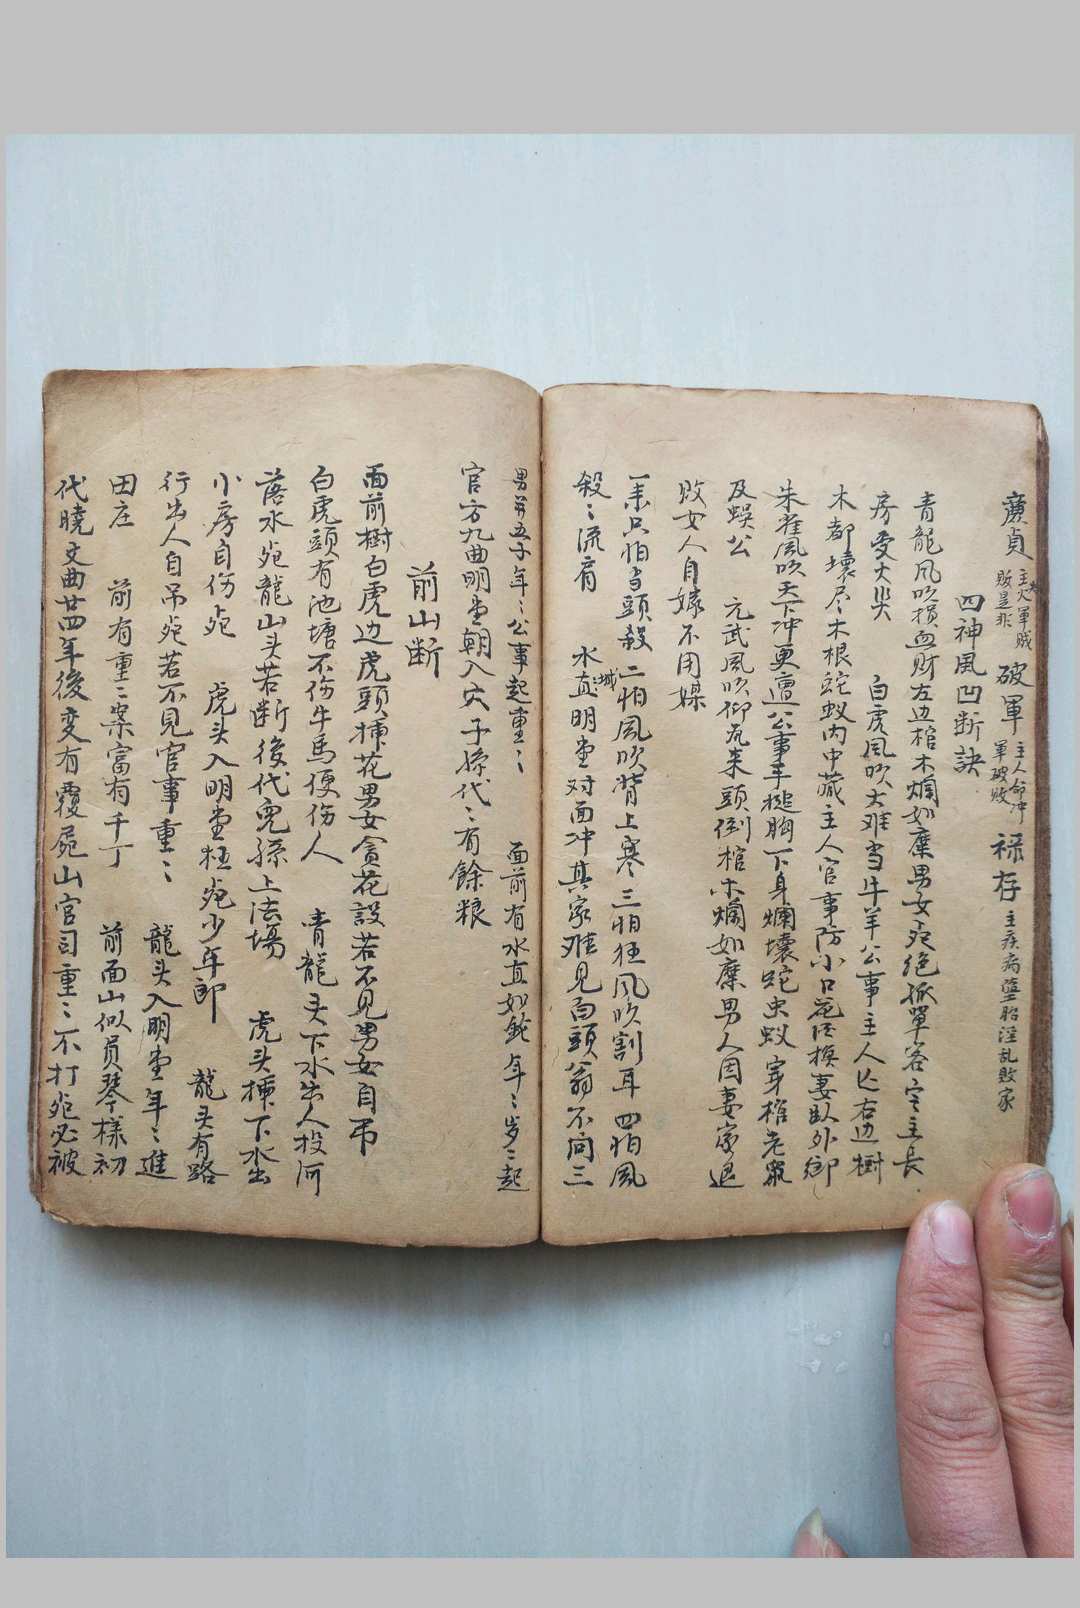 廉貞 主火軍賊 敗是非 破軍 主人命冲 軍破敗 禄存 主疾病墮胎淫乱敗家
四神風凹断訣
青龍風吹損血财左边棺木爛如糜男女死绝孤單客定主長
房受大哭 白虎風吹大难当牛羊公事主人亡右边樹
木都壞尽木根蛇蚁内中藏主人官事防小口花酒換妻卧外鄉
朱雀風吹天下冲更遭公事手搥胸下身爛壞蛇虫蚁穿棺老鼠
及蜈公 元武風吹仰瓦来頭倒棺木爛如糜男人因妻家退
败女人自嫁不用媒
一来只怕当頭殺二怕風吹背上寒三怕狂風吹割耳四怕風
殺〻流肩 水城直〻明堂对面冲其家难見白頭翁不向三
男并五子年〻公事起重〻 面前有水直如鎗年〻岁〻起
官方九曲明堂朝入穴子孫代〻有餘粮
前山断
面前樹白虎边虎頭插花男女貪花設若不見男女自吊
白虎頭有池塘不伤牛馬便伤人 青龍头下水出人投河
落水死龍山头若断後代兒孫上法場 虎头插下水出
小房自伤死 虎头入明堂枉死少年郎 龍头有路
行出人自吊死若不見官事重〻 龍头入明堂年〻進
田庄 前有重〻案富有千丁 前面山似員琴樣初
代曉文曲廿四年後变有覆屍山官司重〻不打死必被